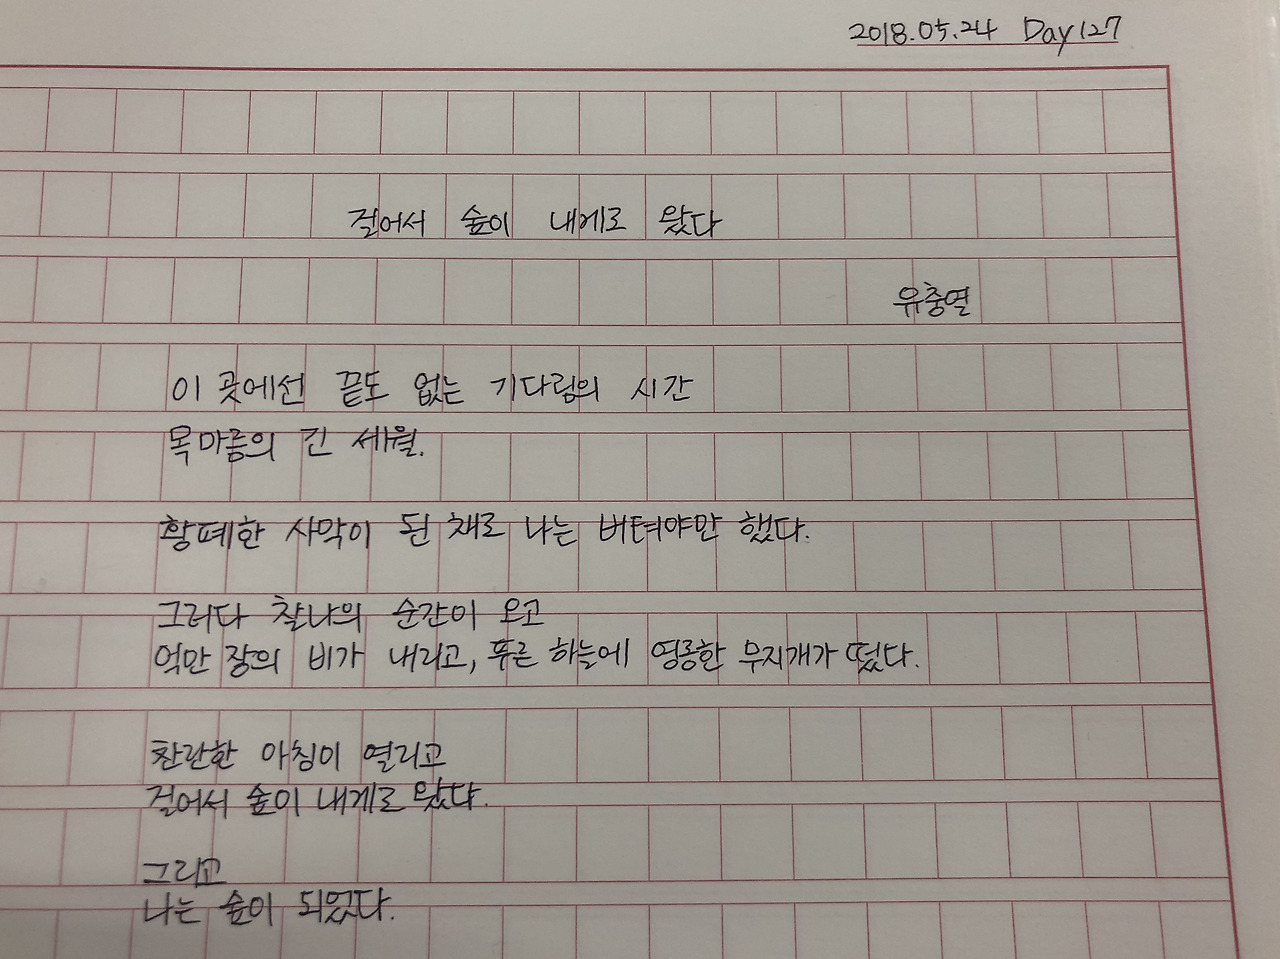 2018.05.24 Day127
걸어서 숲이 내게로 왔다
유충열
이 곳에선 끝도 없는 기다림의 시간
목마름의 긴 세월.
황폐한 사막이 된 채로 나는 버텨야만 했다.
그러다 찰나의 순간이 오고
억만 장의 비가 내리고, 푸른 하늘에 영롱한 무지개가 떴다.
찬란한 아침이 열리고
걸어서 숲이 내게로 왔다.
그리고
나는 숲이 되었다.